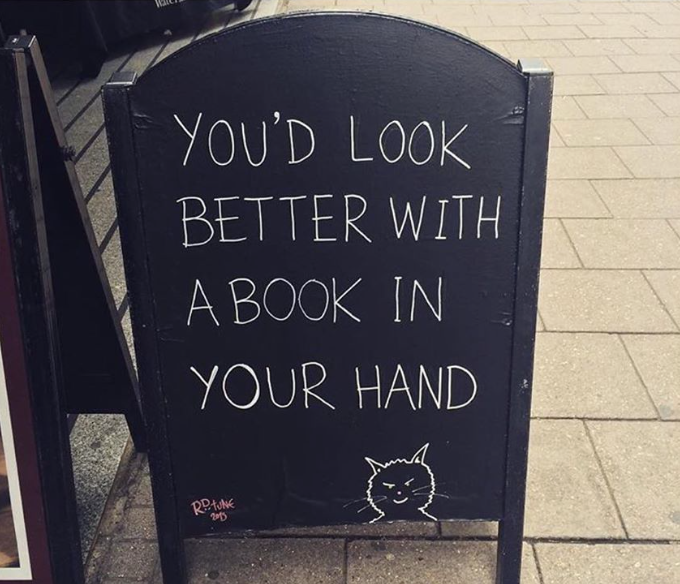 YOU'D LOOK
BETTER WITH
A BOOK IN
YOUR HAND